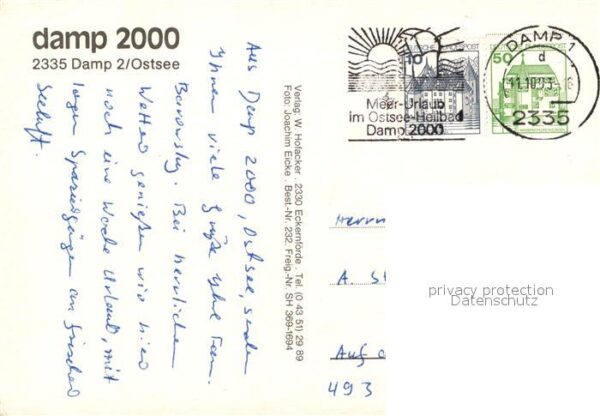 damp 2000
2335 Damp 2/Ostsee
Aus Damp 2000, Ostsee, senden
Ihnen viele Grüße Ihre Fam.
Bei herrlichem
Wetter genießen wir hier
noch eine Woche Urlaub, mit
langen Spaziergängen an frischer
Seeluft.
Verlag: W. Hofacker . 2330 Eckernförde . Tel. (0 43 51) 29 89
Foto: Joachim Eicke . Best.-Nr. 232, Freig.-Nr. SH 369-1694
DEUTSCHE BUNDESPOST
10
50
Meer-Urlaub
im Ostsee-Heilbad
Damp 2000
DAMP 1
d
2335
Herrn
A. St
Auf d
493
privacy protection
Datenschutz